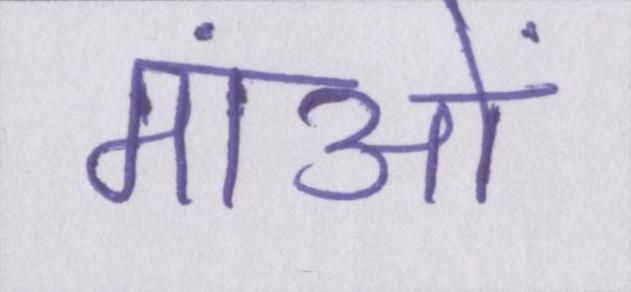 मांओं